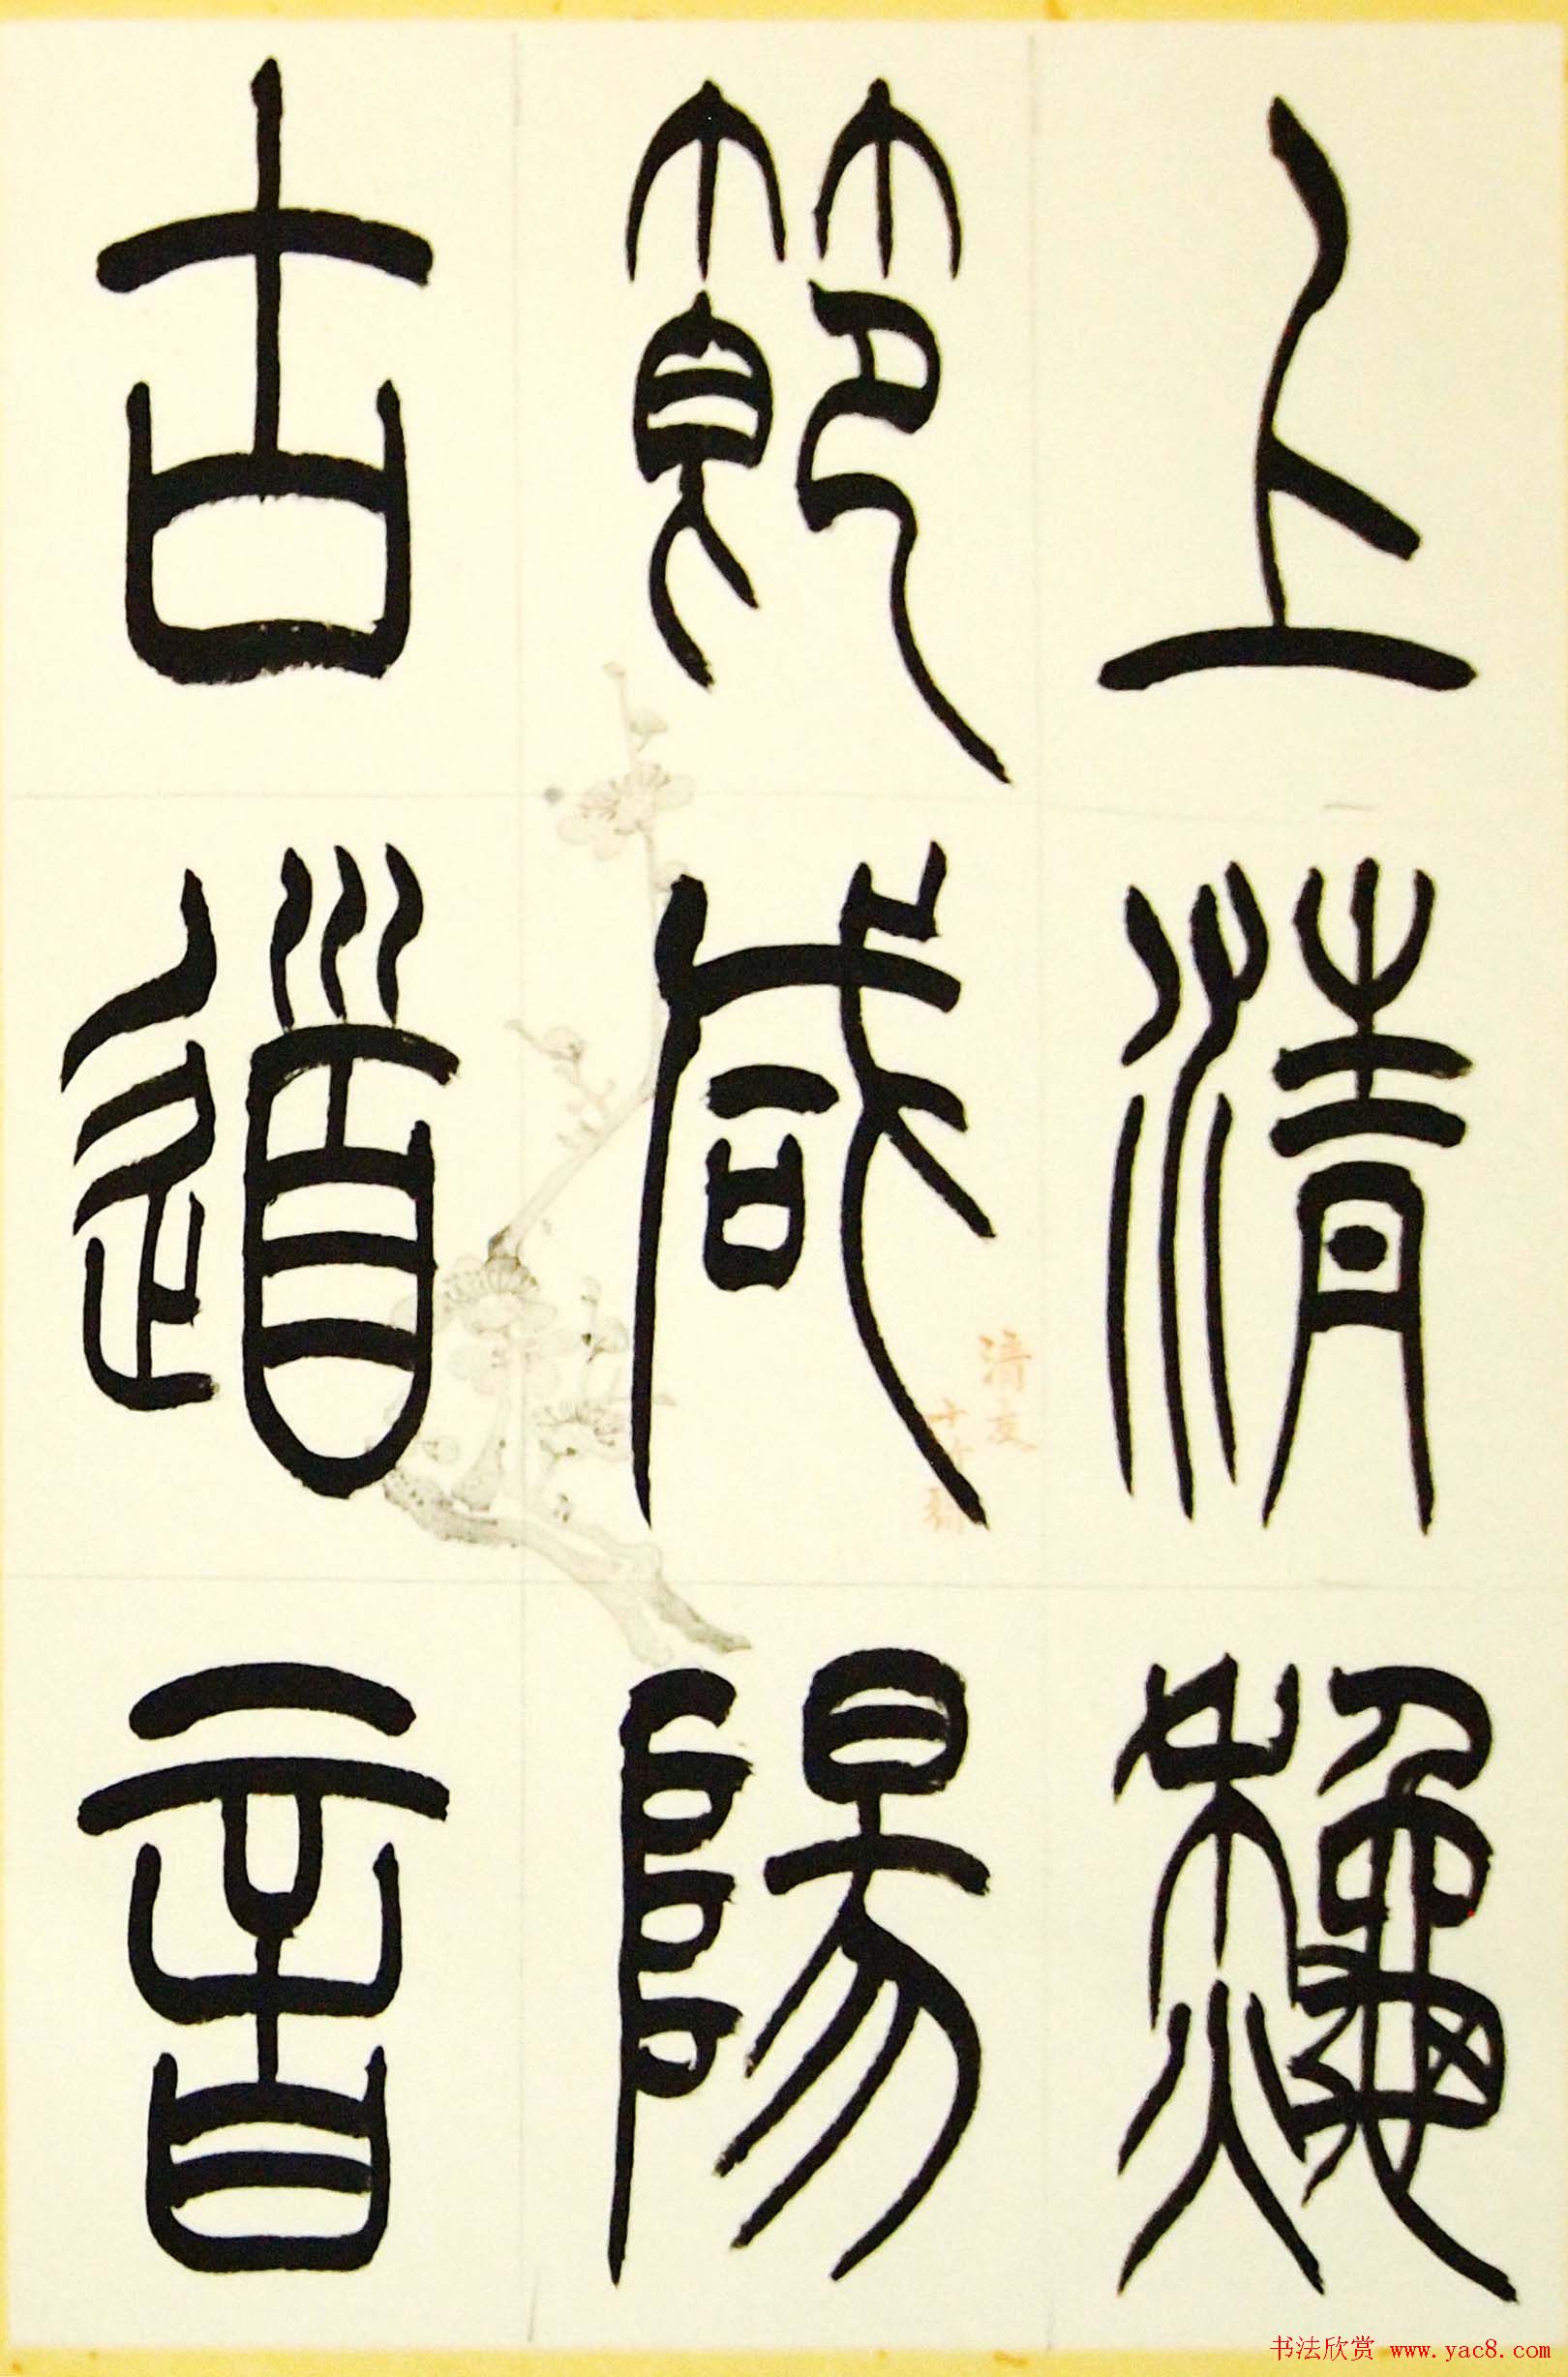 上清龝
節咸陽
古道音
清友
书法欣赏 www.yac8.com